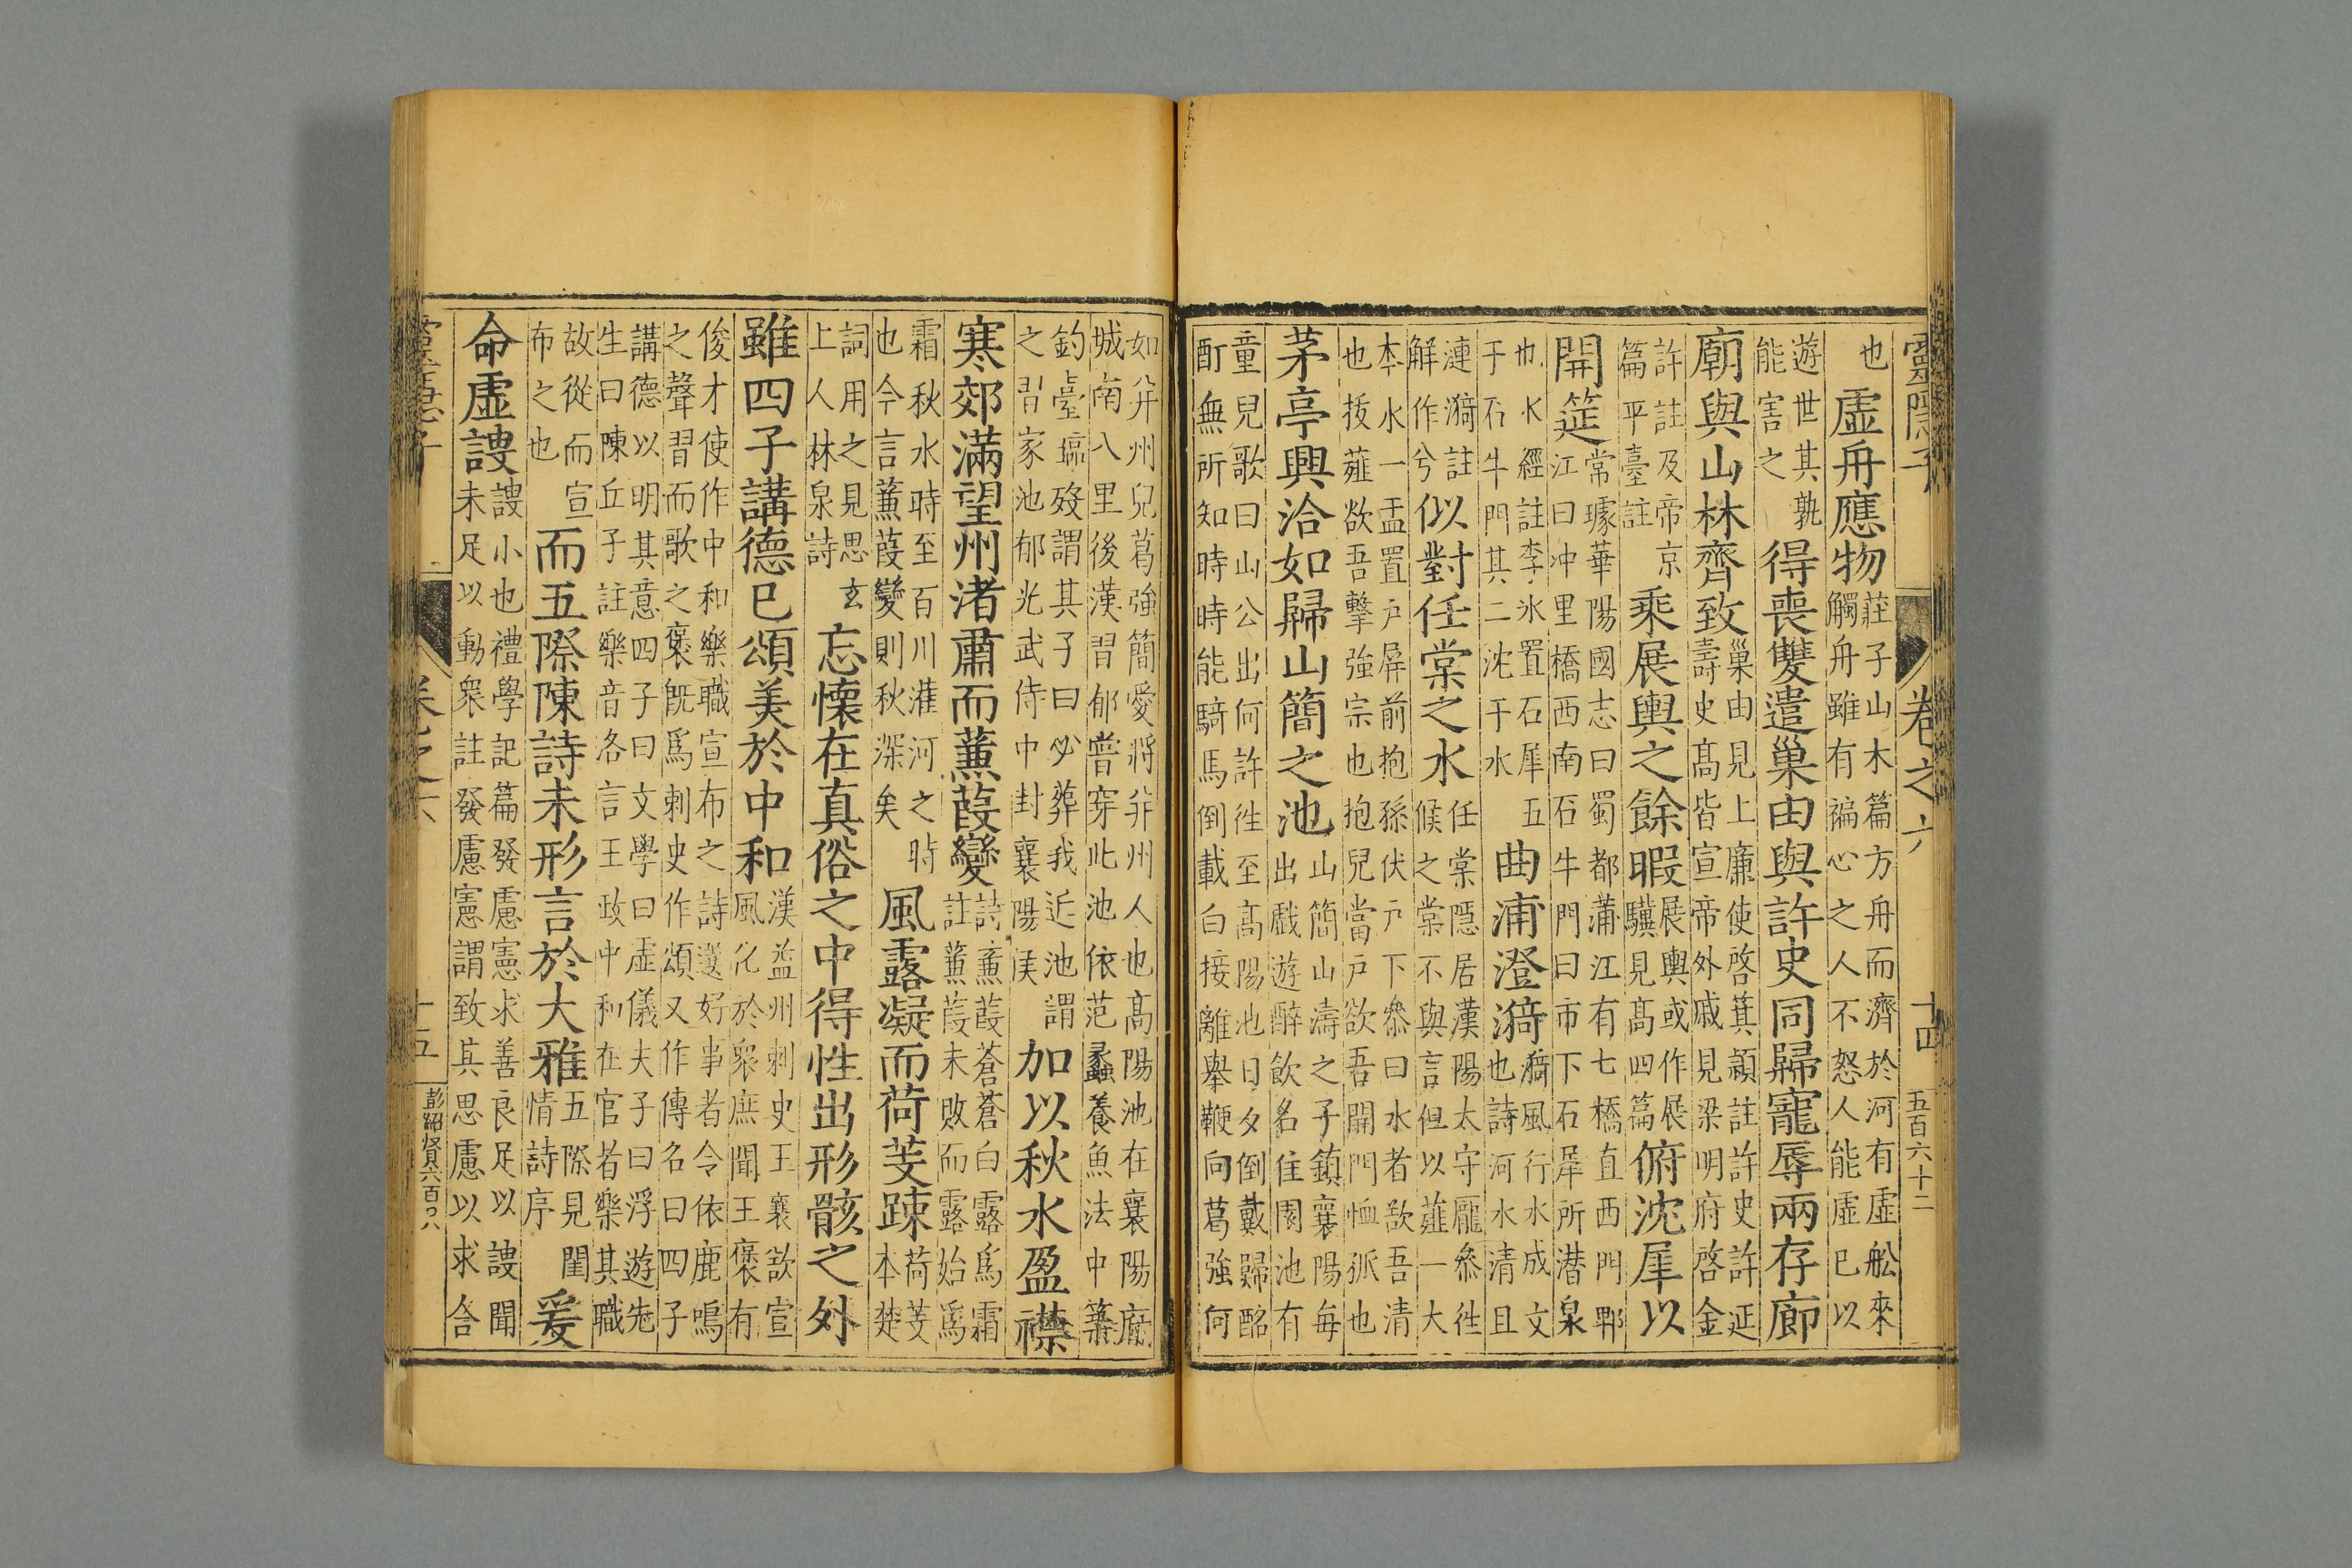 靈隱子 卷之六 十四 五百六十二
也 虛舟應物 莊子山木篇方舟而濟於河有虛舩來
觸舟雖有褊心之人不怒人能虛已以
遊世其孰
能害之 得喪雙遣巢由與許史同歸寵辱兩存廊
廟與山林齊致 巢由見上廉使啓箕潁註許史許延
壽史髙皆宣帝外戚見梁明府啓金
許註及帝京
篇平臺註 乘展輿之餘暇 展輿或作展
驥見髙四篇 俯沈犀以
開筵 常璩華陽國志曰蜀都蒲江有七橋直西門郫
江曰冲里橋西南石牛門曰市下石犀所潜泉
也水經註李氷置石犀五
于石牛門其二沈于水 曲浦澄漪 漪風行水成文
也詩河水清且
漣漪註
解作兮 似對任棠之水 任棠隱居漢陽太守龎叅徃
候之棠不與言但以薤一大
本水一盂置户屏前抱孫伏户下叅曰水者欲吾清
也拔薤欲吾擊強宗也抱兒當户欲吾開門恤孤也
茅亭興洽如歸山簡之池 山簡山濤之子鎮襄陽毎
出戲遊醉飲名佳園池有
童兒歌曰山公出何許徃至髙陽池日夕倒載歸酩
酊無所知時時能騎馬倒載白接離舉鞭向葛強何
如并州兒葛強簡愛將并州人也髙陽池在襄陽
城南八里後漢習郁曾穿此池依范蠡養魚法中築
釣臺臨殁謂其子曰必葬我近池謂
之習家池郁光武侍中封襄陽侯 加以秋水盈襟
寒郊滿望州渚肅而蒹葭變 詩蒹葭蒼蒼白露爲霜
註蒹葭未敗而露始爲
霜秋水時至百川灌河之時
也今言蒹葭變則秋深矣 風露凝而荷芰踈 荷芰
本楚
詞用之見思玄
上人林泉詩 忘懷在真俗之中得性出形骸之外
雖四子講德已頌美於中和 漢益州刺史王襄欲宣
風化於衆庶聞王褒有
俊才使作中和樂職宣布之詩選好事者令依鹿鳴
之聲習而歌之褒旣爲刺史作頌又作傳名曰四子
講德以明其意四子曰文學曰虛儀夫子曰浮遊先
生曰陳丘子註樂音洛言王政中和在官者樂其職
故從而宣
布之也 而五際陳詩未形言於大雅 五際見閨
情詩序 爰
命虛謏 謏小也禮學記篇發慮憲求善良足以謏聞
未足以動衆註發慮憲謂致其思慮以求合
卷之六 十五 彭紹賢六百○八